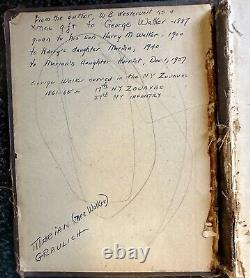 From the author, W.B. destroyed as a
Xmas gift to George Walker - 1887
given to his son Harry M. Walker, 1900
to Harry's daughter Marian, 1940
to Marian's daughter Harriet, Dec. 1, 1957
George Walker served in the NY Zouaves
1861-65 17th NY Zouaves
NY Infantry
MARIAN (nee Walker)
GRAULICH